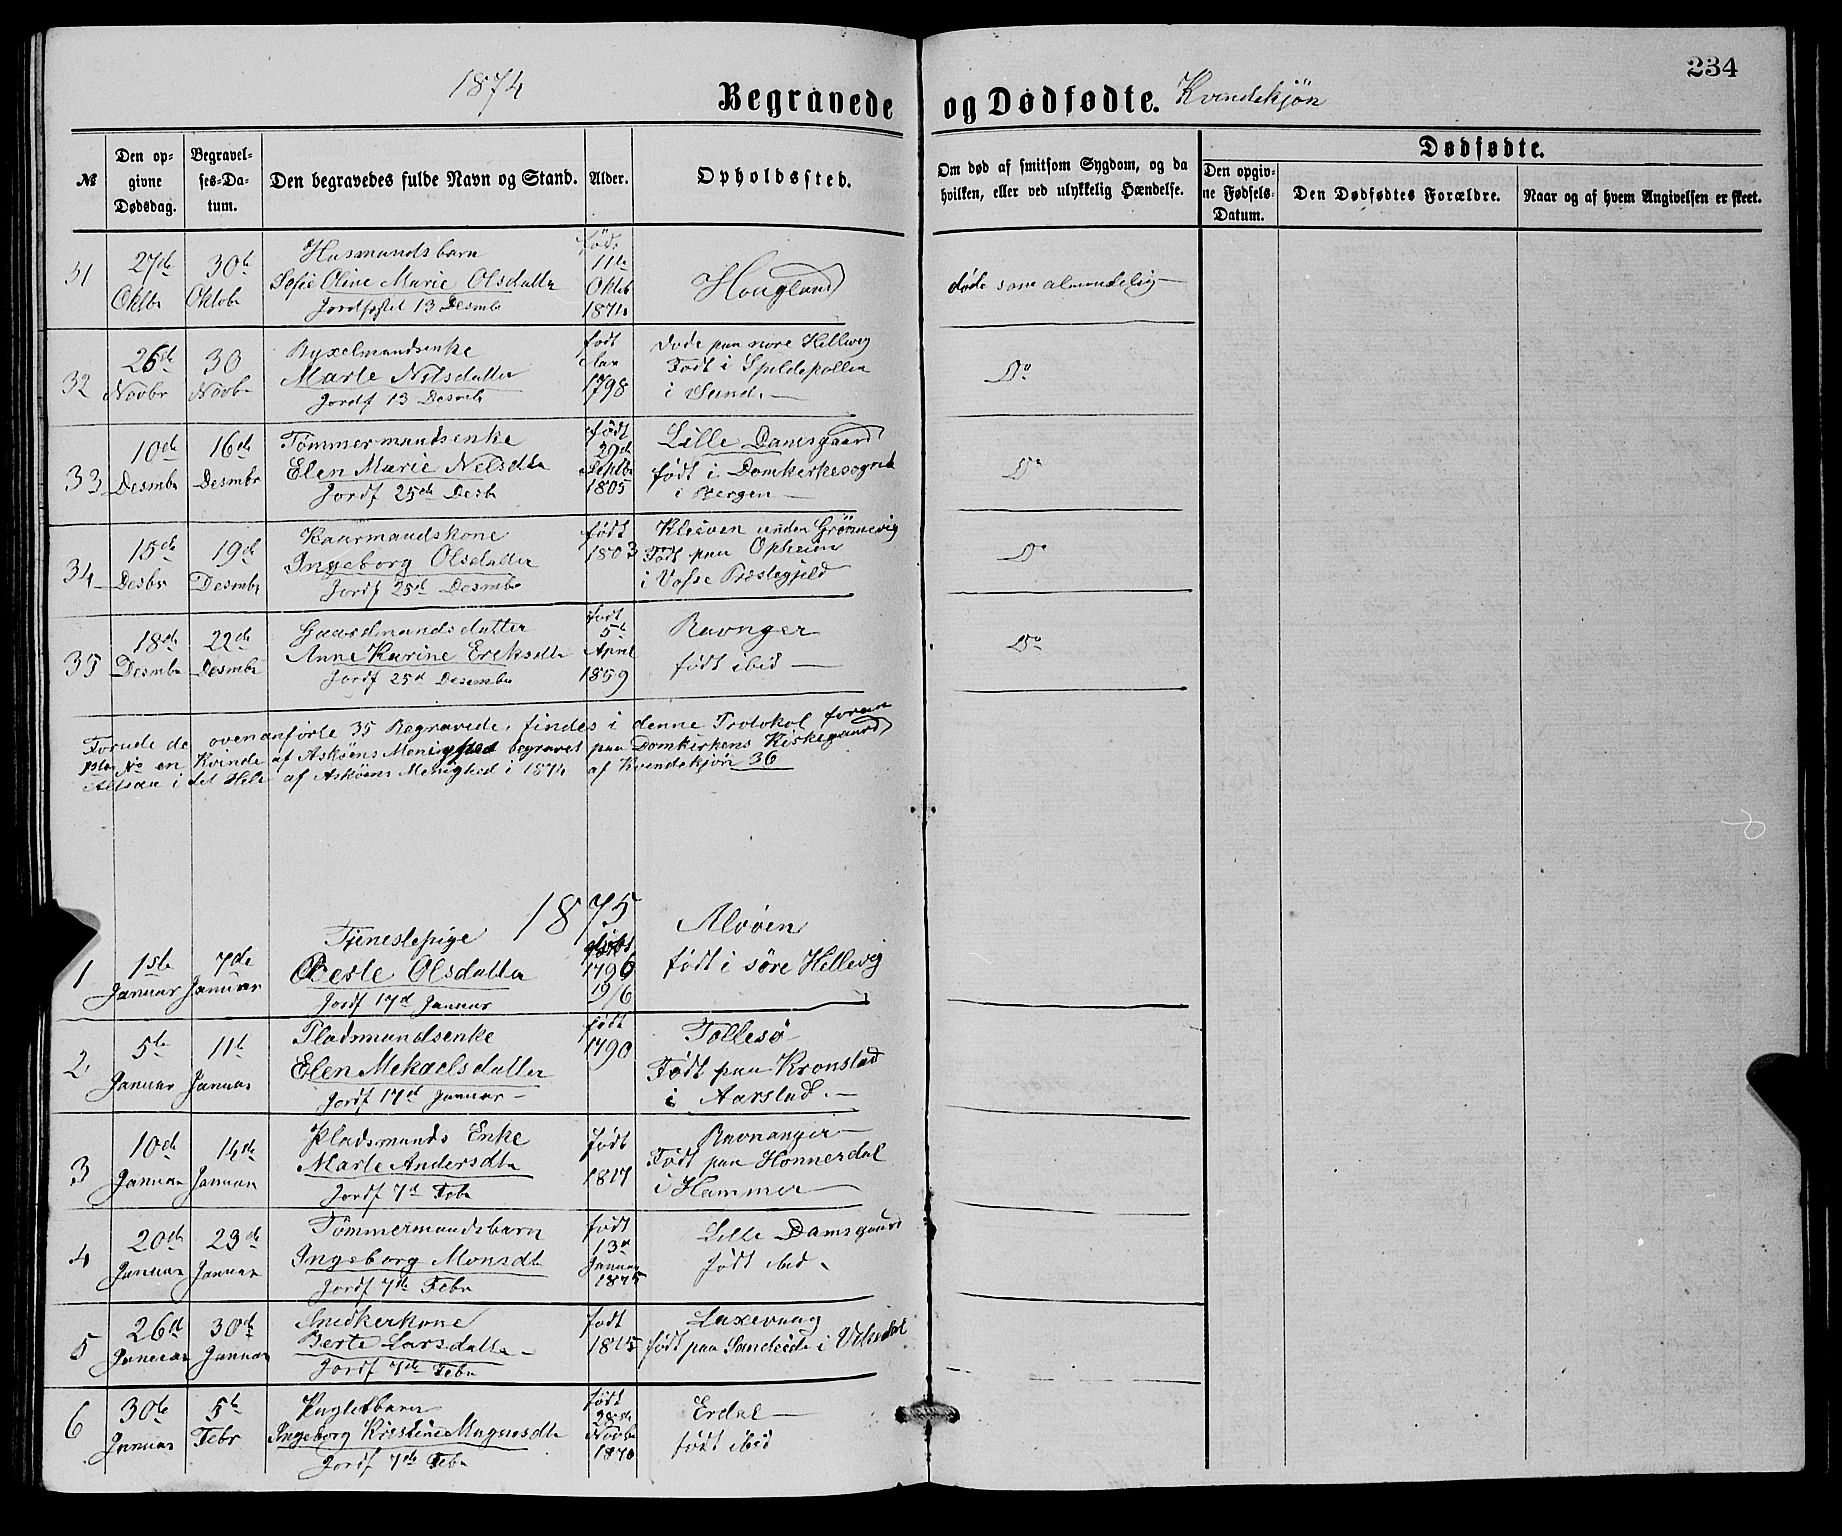 234
1874
Begravede og Dødfødte. Kvindekjøn
№
Den opgivne Dødsdag.
Begravelses-Datum.
Den begravedes fulde Navn og Stand.
Alder.
Opholdssted.
Om død af smitsom Sygdom, og da hvilken, eller ved ulykkelig Hændelse.
Dødfødte.
Den opgivne Fødsels-Datum.
Den Dødfødtes Forældre.
Naar og af hvem Angivelsen er skeet.
31
27de Oktbr
30te Oktobr
Husmandsbarn
Sofie Oline Marie Olsdatter
Jordfæstet 13 Desmbr
født 11te Oktb 1874
Hougland
døde som almindelig
32
26de Novbr
30 Novbr
enke
Marte Nilsdatter
Jordf 13 Desmbr
født 1798
Døde paa nore Hellevig
Født i Spildepollen
i Sund.
Do
33
10de Desmbr
16de Desmbr
Tømmermandsenke
Elen Marie Nelsdtr
Jordf 25de Desbr
født 29de Septbr 1805
Lille Damsgaard
født i Domkirkesognet
i Bergen
Do
34
15de Desbr
19de Desmbr
Kaarmandskone
Ingeborg Olsdatter
Jordf 25de Desmbr
født 1803
Kleiven under Grønnevig
Født paa Opheim
i Vosse Prestegjeld
Do
35
18de Desmbr
22de Desmbr
Gaardmandsdatter
Anne Karine Eriksdtr
Jordf 25d Desembr
født 5te April 1859
Ravnger
født ibid
Do
Forude de ovenanførte 35 Begravede, findes i denne Protokol foran
No en Kvinde af Askøens Menighed begravet paa Domkirkens Kirkegaard
Altsaa i det Hele af Askøens Menighed i 1874 af Kvindekjøn 36
1875
1
1ste Januar
7de Januar
Tjenestepige
Olsdatter
Jordf 17d Januar
1796 19/6
Alvøen
født i søre Hellevig
2
5te Januar
11te Januar
Pladsmandsenke
Elen Mekaelsdatter
Jordf 17d Januar
født 1790
Follesø
Født paa Kronstad
i Aarstad.
3
10de Januar
14de Januar
Pladsmands Enke
Marte Andersdtr
Jordf 7d Febr
født 1817
Ravnanger
Født paa Honnerdal
i Hammer
4
20de Januar
23de Januar
Tømmermandsbarn
Ingeborg Monsdtr
Jordf 7de Febr
født 13d Januar 1875
Lille Damsgaard
født ibid
5
26d Januar
30de Januar
Snedkerkone
Berte Larsdatter
Jordf 7de Febr
født 1815
Laxevaag
født paa Sandeide i
6
30te Januar
5te Febr
Ingeborg Kristine Magnusdtr
Jordf 7de Febr
født 28de Novbr
Erdal
født ibid